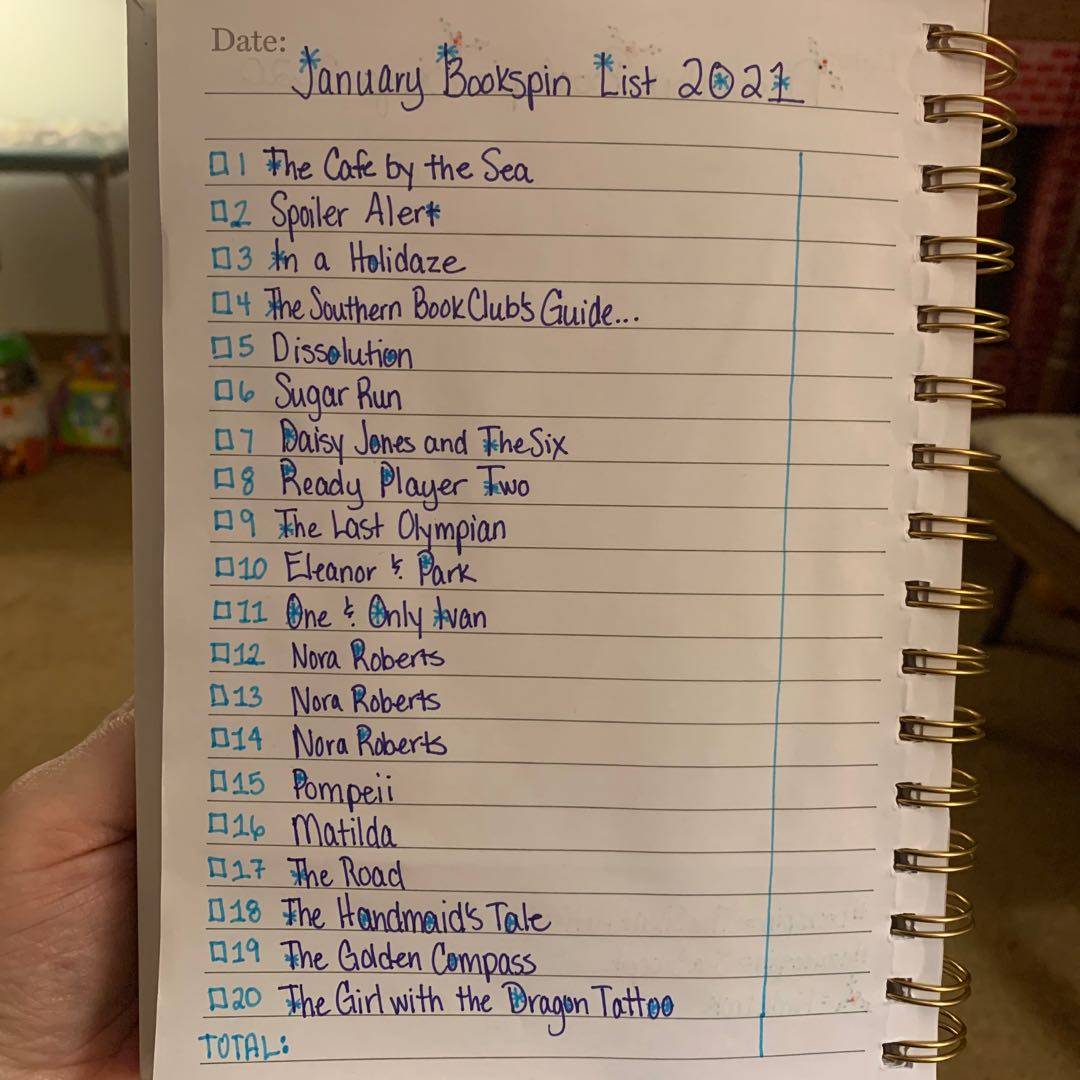 Date:
January Bookspin List 2021
1 The Cafe by the Sea
2 Spoiler Alert
3 In a Holidaze
4 The Southern Book Club's Guide...
5 Dissolution
6 Sugar Run
7 Daisy Jones and The Six
8 Ready Player Two
9 The Last Olympian
10 Eleanor & Park
11 One & Only Ivan
12 Nora Roberts
13 Nora Roberts
14 Nora Roberts
15 Pompeii
16 Matilda
17 The Road
18 The Handmaid's Tale
19 The Golden Compass
20 The Girl with the Dragon Tattoo
TOTAL: